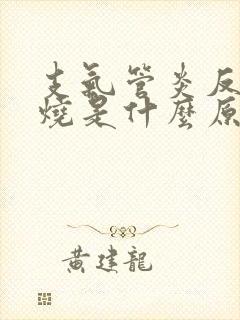 支氣管炎反
燒是什麼原
黄建龍